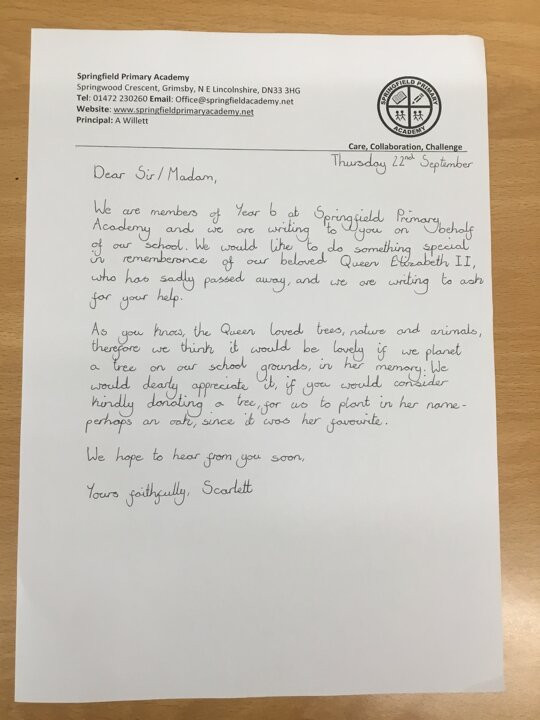 Springfield Primary Academy
Springwood Crescent, Grimsby, N E Lincolnshire, DN33 3HG
Tel: 01472 230260 Email: Office@springfieldacademy.net
Website: www.springfieldprimaryacademy.net
Principal: A Willett
SPRINGFIELD PRIMARY
ACADEMY
Care, Collaboration, Challenge
Thursday 22nd September
Dear Sir/Madam,
We are members of Year 6 at Springfield Primary
Academy and we are writing to you on behalf
of our school. We would like to do something special
in rememberance of our beloved Queen Elizabeth II,
who has sadly passed away, and we are writing to ask
for your help.
As you know, the Queen loved trees, nature and animals,
therefore we think it would be lovely if we planet
a tree on our school grounds, in her memory. We
would dearly appreciate it, if you would consider
kindly donating a tree, for us to plant in her name-
perhaps an oak, since it was her favourite.
We hope to hear from you soon,
Yours faithfully, Scarlett